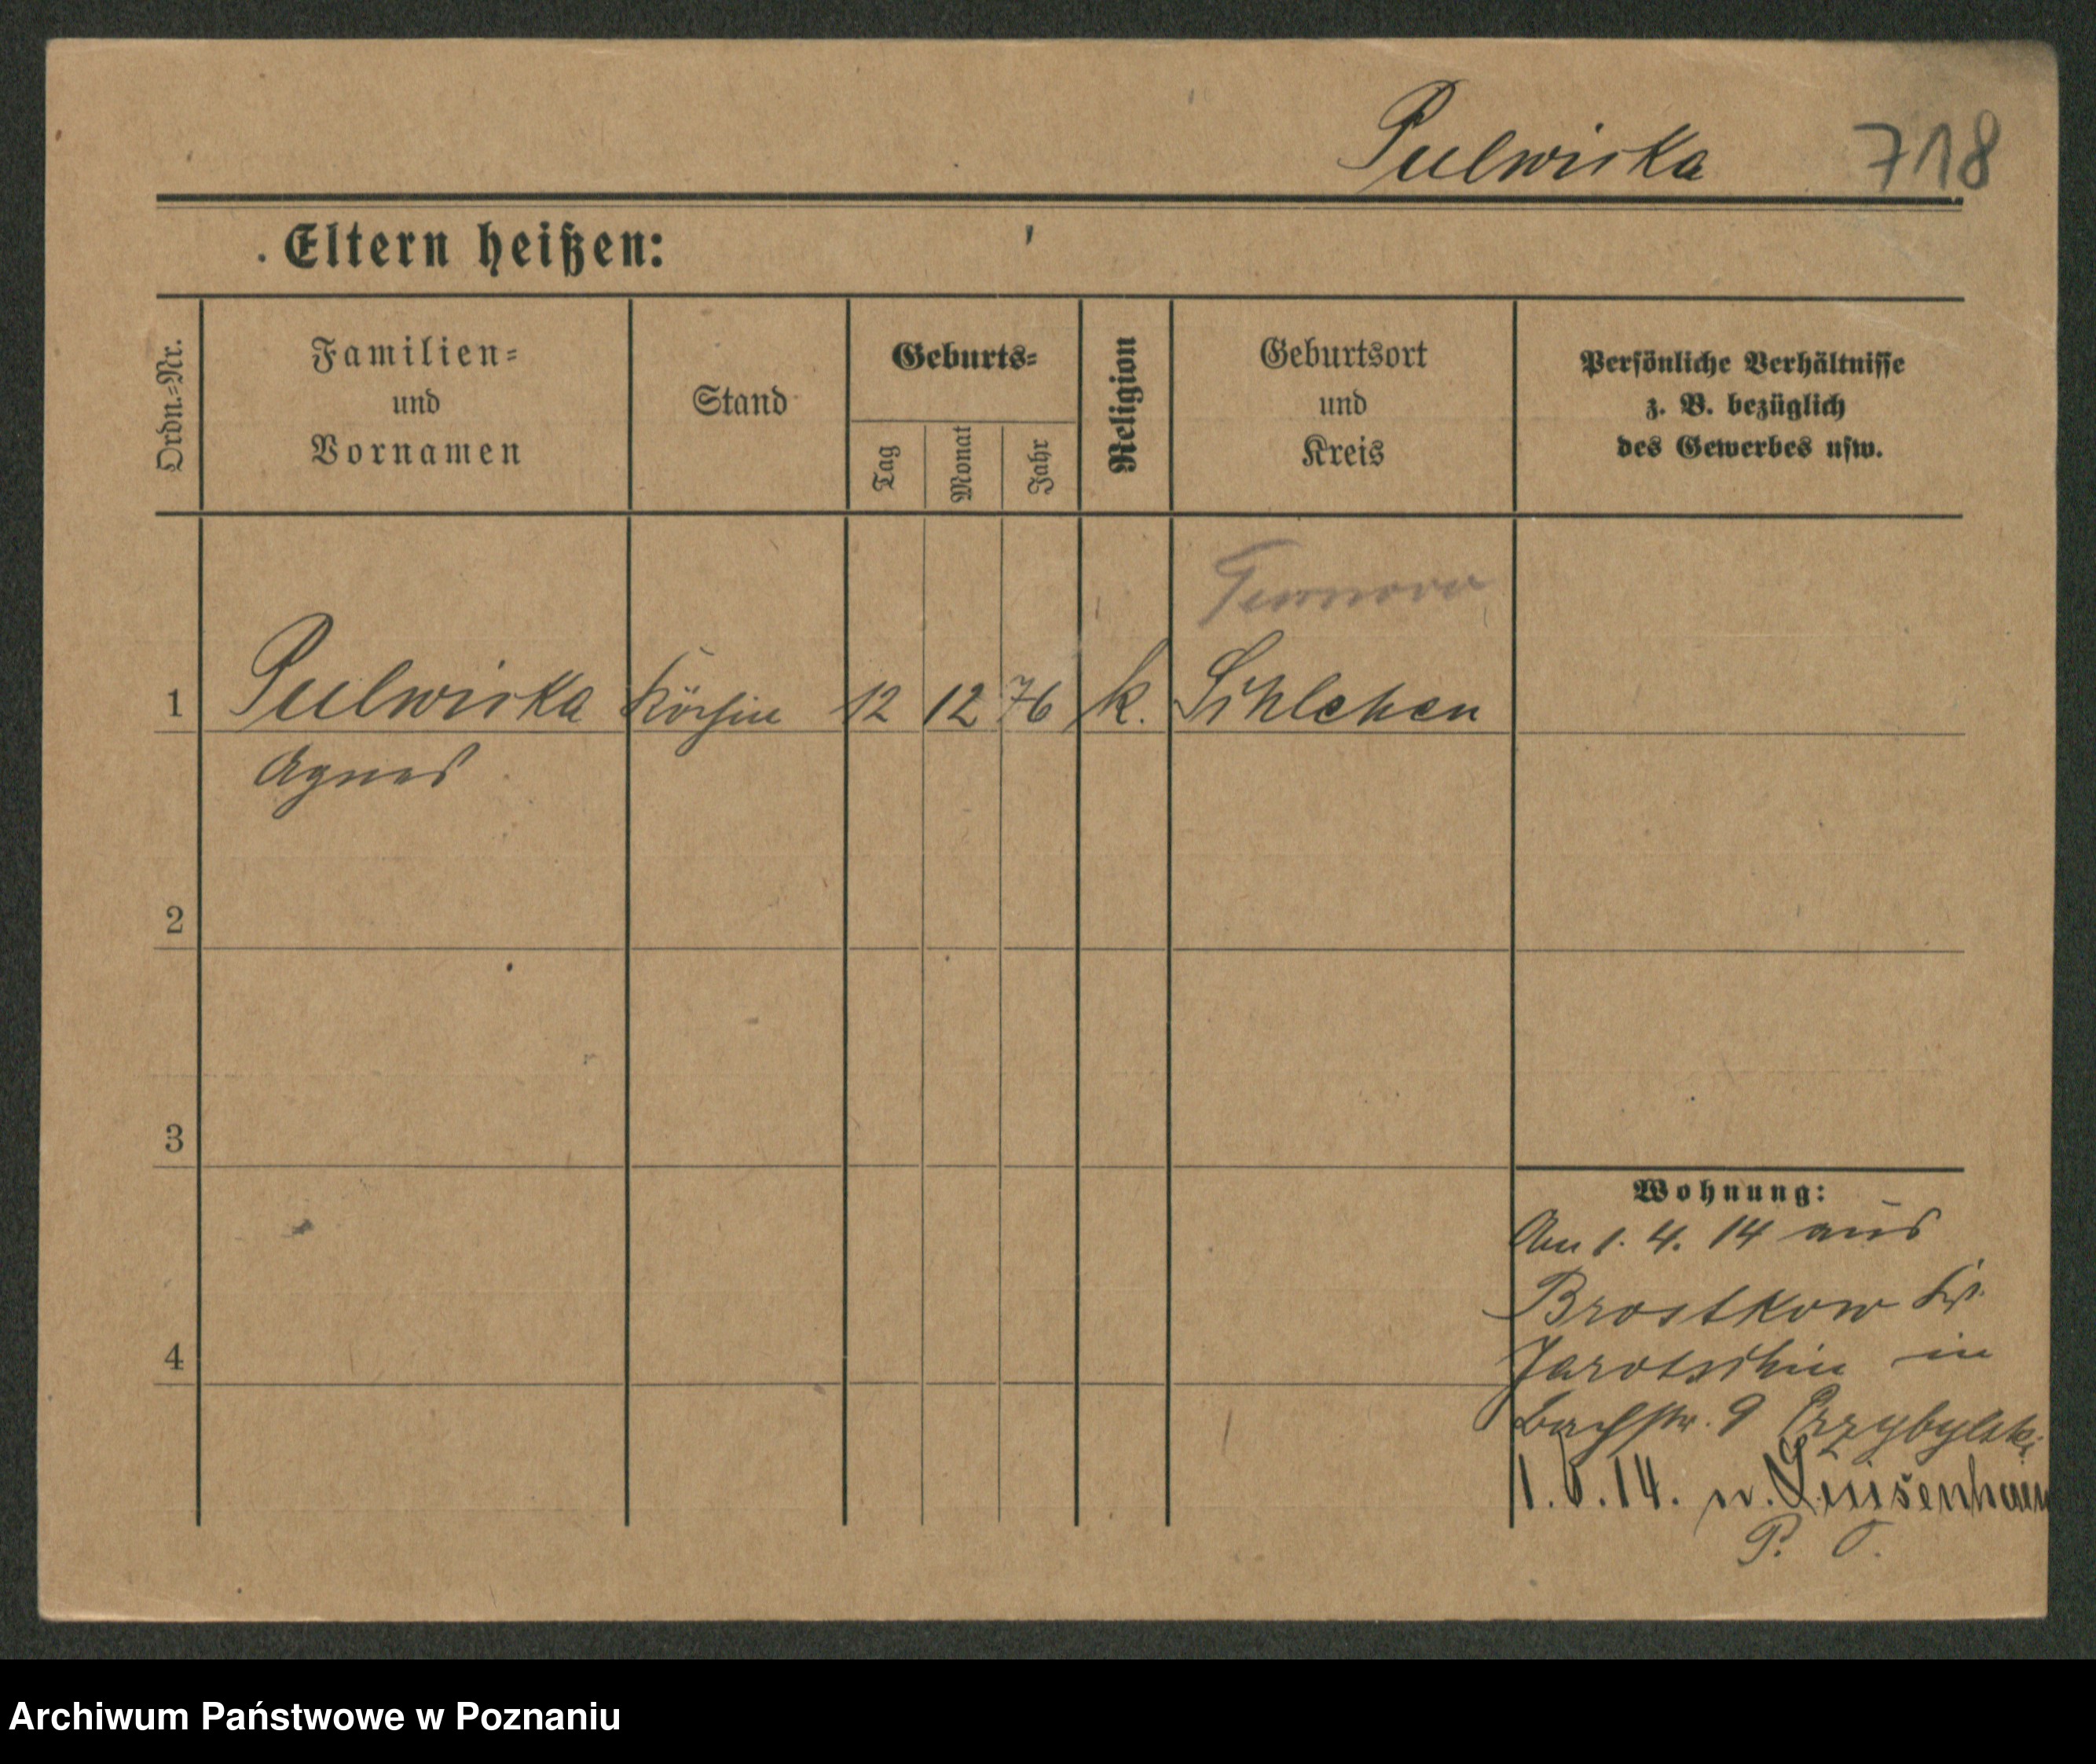 Pulwicka 718
Eltern heißen:
Ordn.-Nr.
Familien-
und
Vornamen
Stand
Geburts-
Tag
Monat
Jahr
Religion
Geburtsort
und
Kreis
Persönliche Verhältnisse
z. B. bezüglich
des Gewerbes usw.
1 Pulwicka Köchin 12 12 76 k. Schlehen
Agnes
2
3
4
Wohnung:
Am 1. 4. 14 aus
Brostkow
Jarotschin in
Bachstr. 9 Przybylski
1. 6. 14. n. Luisenhain
P. O.
Archiwum Państwowe w Poznaniu